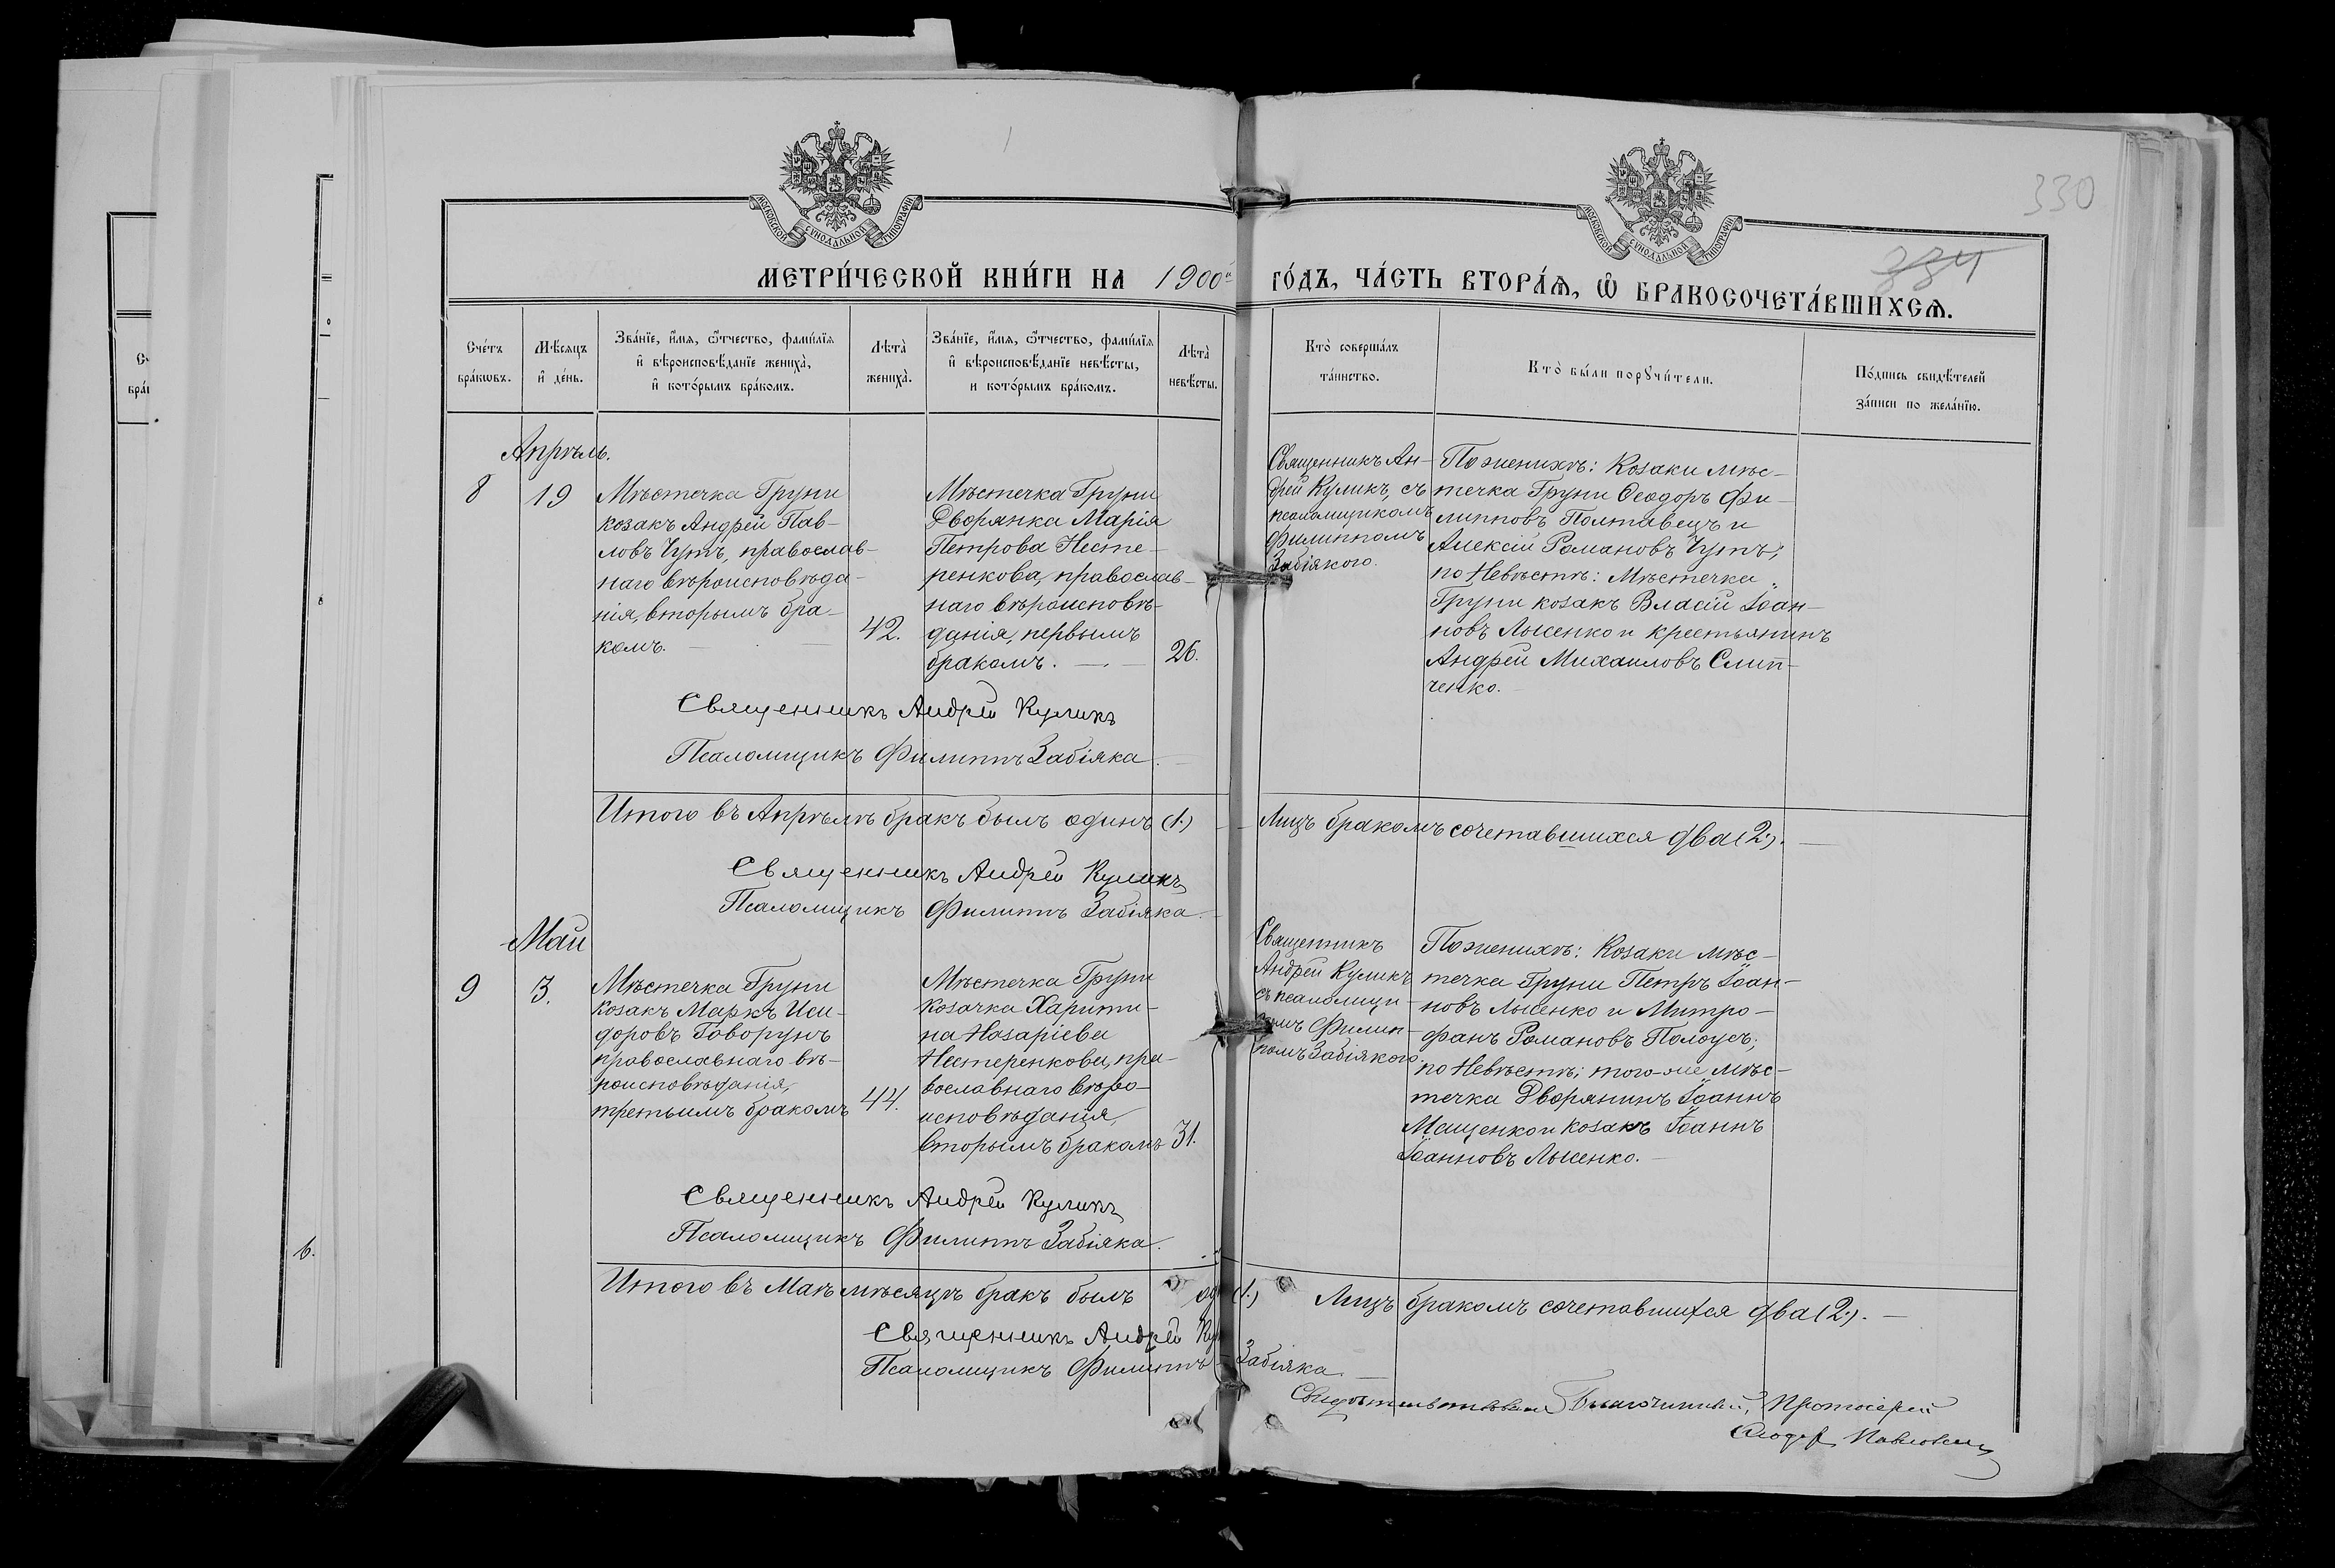 330
334
МОСКОВСКОЙ СѴНОДАЛЬНОЙ ТИПОГРАФІИ
МОСКОВСКОЙ СѴНОДАЛЬНОЙ ТИПОГРАФІИ
МЕТРИ́ЧЕСКОЙ КНИ́ГИ НА 1900й ГО́ДЪ, ЧА́СТЬ ВТОРА́Ѧ, Ѿ БРАКОСОЧЕТА́ВШИХСѦ.
Сче́тъ
бра́кѡвъ.
Мѣ́сяцъ
и҆ де́нь.
Зва́нїе, и҆́мя, ѻ҆́тчество, фами́лїя
и҆ вѣроисповѣ́данїе жениха̀,
и҆ кото́рымъ бра́комъ.
Лѣта̀
жениха̀.
Зва́нїе, и҆́мя, ѻ҆́тчество, фами́лїя
и҆ вѣроисповѣ́данїе невѣ́сты,
и кото́рымъ бра́комъ.
Лѣта̀
невѣ́сты.
Кто̀ соверша́лъ
та́инство.
Кто̀ бы́ли порꙋчи́тели.
По́дпись свидѣ́телей
за́писи по жела́нїю.
Апрѣль.
8
19
Мѣстечка Груни
козакъ Андрей Пав-
ловъ Чутъ, православ-
наго вѣроисповѣда-
нія, вторымъ бра-
комъ.
42.
Мѣстечка Груни
Дворянка Марія
Петрова Несте-
ренкова, православ-
наго вѣроисповѣ-
данія, первымъ
бракомъ.
26.
Священникъ Ан-
дрей Куликъ, съ
псаломщикомъ
Филиппомъ
Забіякого.
По женихѣ: Козаки мѣс-
течка Груни Ѳеодоръ Фи-
липповъ Полтавецъ и
Алексій Романовъ Чутъ;
по Невѣстѣ: Мѣстечка
Груни козакъ Власій Іоан-
новъ Лысенко и крестьянинъ
Андрей Михаиловъ Слип-
ченко.
Священникъ Андрей Куликъ
Псаломщикъ Филиппъ Забіяка.
Итого въ Апрѣлѣ бракъ былъ одинъ (1.) Лицъ бракомъ сочетавшихся два (2.).
Священникъ Андрей Куликъ
Псаломщикъ Филиппъ Забіяка.
Май
9
3.
Мѣстечка Груни
Козакъ Маркъ Иси-
доровъ Говорунъ
православнаго вѣ-
роисповѣданія,
третьимъ бракомъ
44.
Мѣстечка Груни
козачка Харити-
на Назаріева
Нестеренкова, пра-
вославнаго вѣро-
исповѣданія,
вторымъ бракомъ
31.
Священникъ
Андрей Куликъ
съ псаломщи-
комъ Филип-
помъ Забіякого.
По женихѣ: Козаки мѣс-
течка Груни Петръ Іоан-
новъ Лысенко и Митро-
фанъ Романовъ Полоусъ;
по Невѣстѣ: того-же мѣс-
течка Дворянинъ Іоаннъ
Мащенко и козакъ Іоаннъ
Іоанновъ Лысенко.
Священникъ Андрей Куликъ
Псаломщикъ Филиппъ Забіяка.
Итого въ Маѣ мѣсяцѣ бракъ былъ од (1.) Лицъ бракомъ сочетавшихся два (2.).
Священникъ Андрей Ку
Псаломщикъ Филиппъ Забіяка.
Благочинный, Протоіерей
Ѳеодоръ